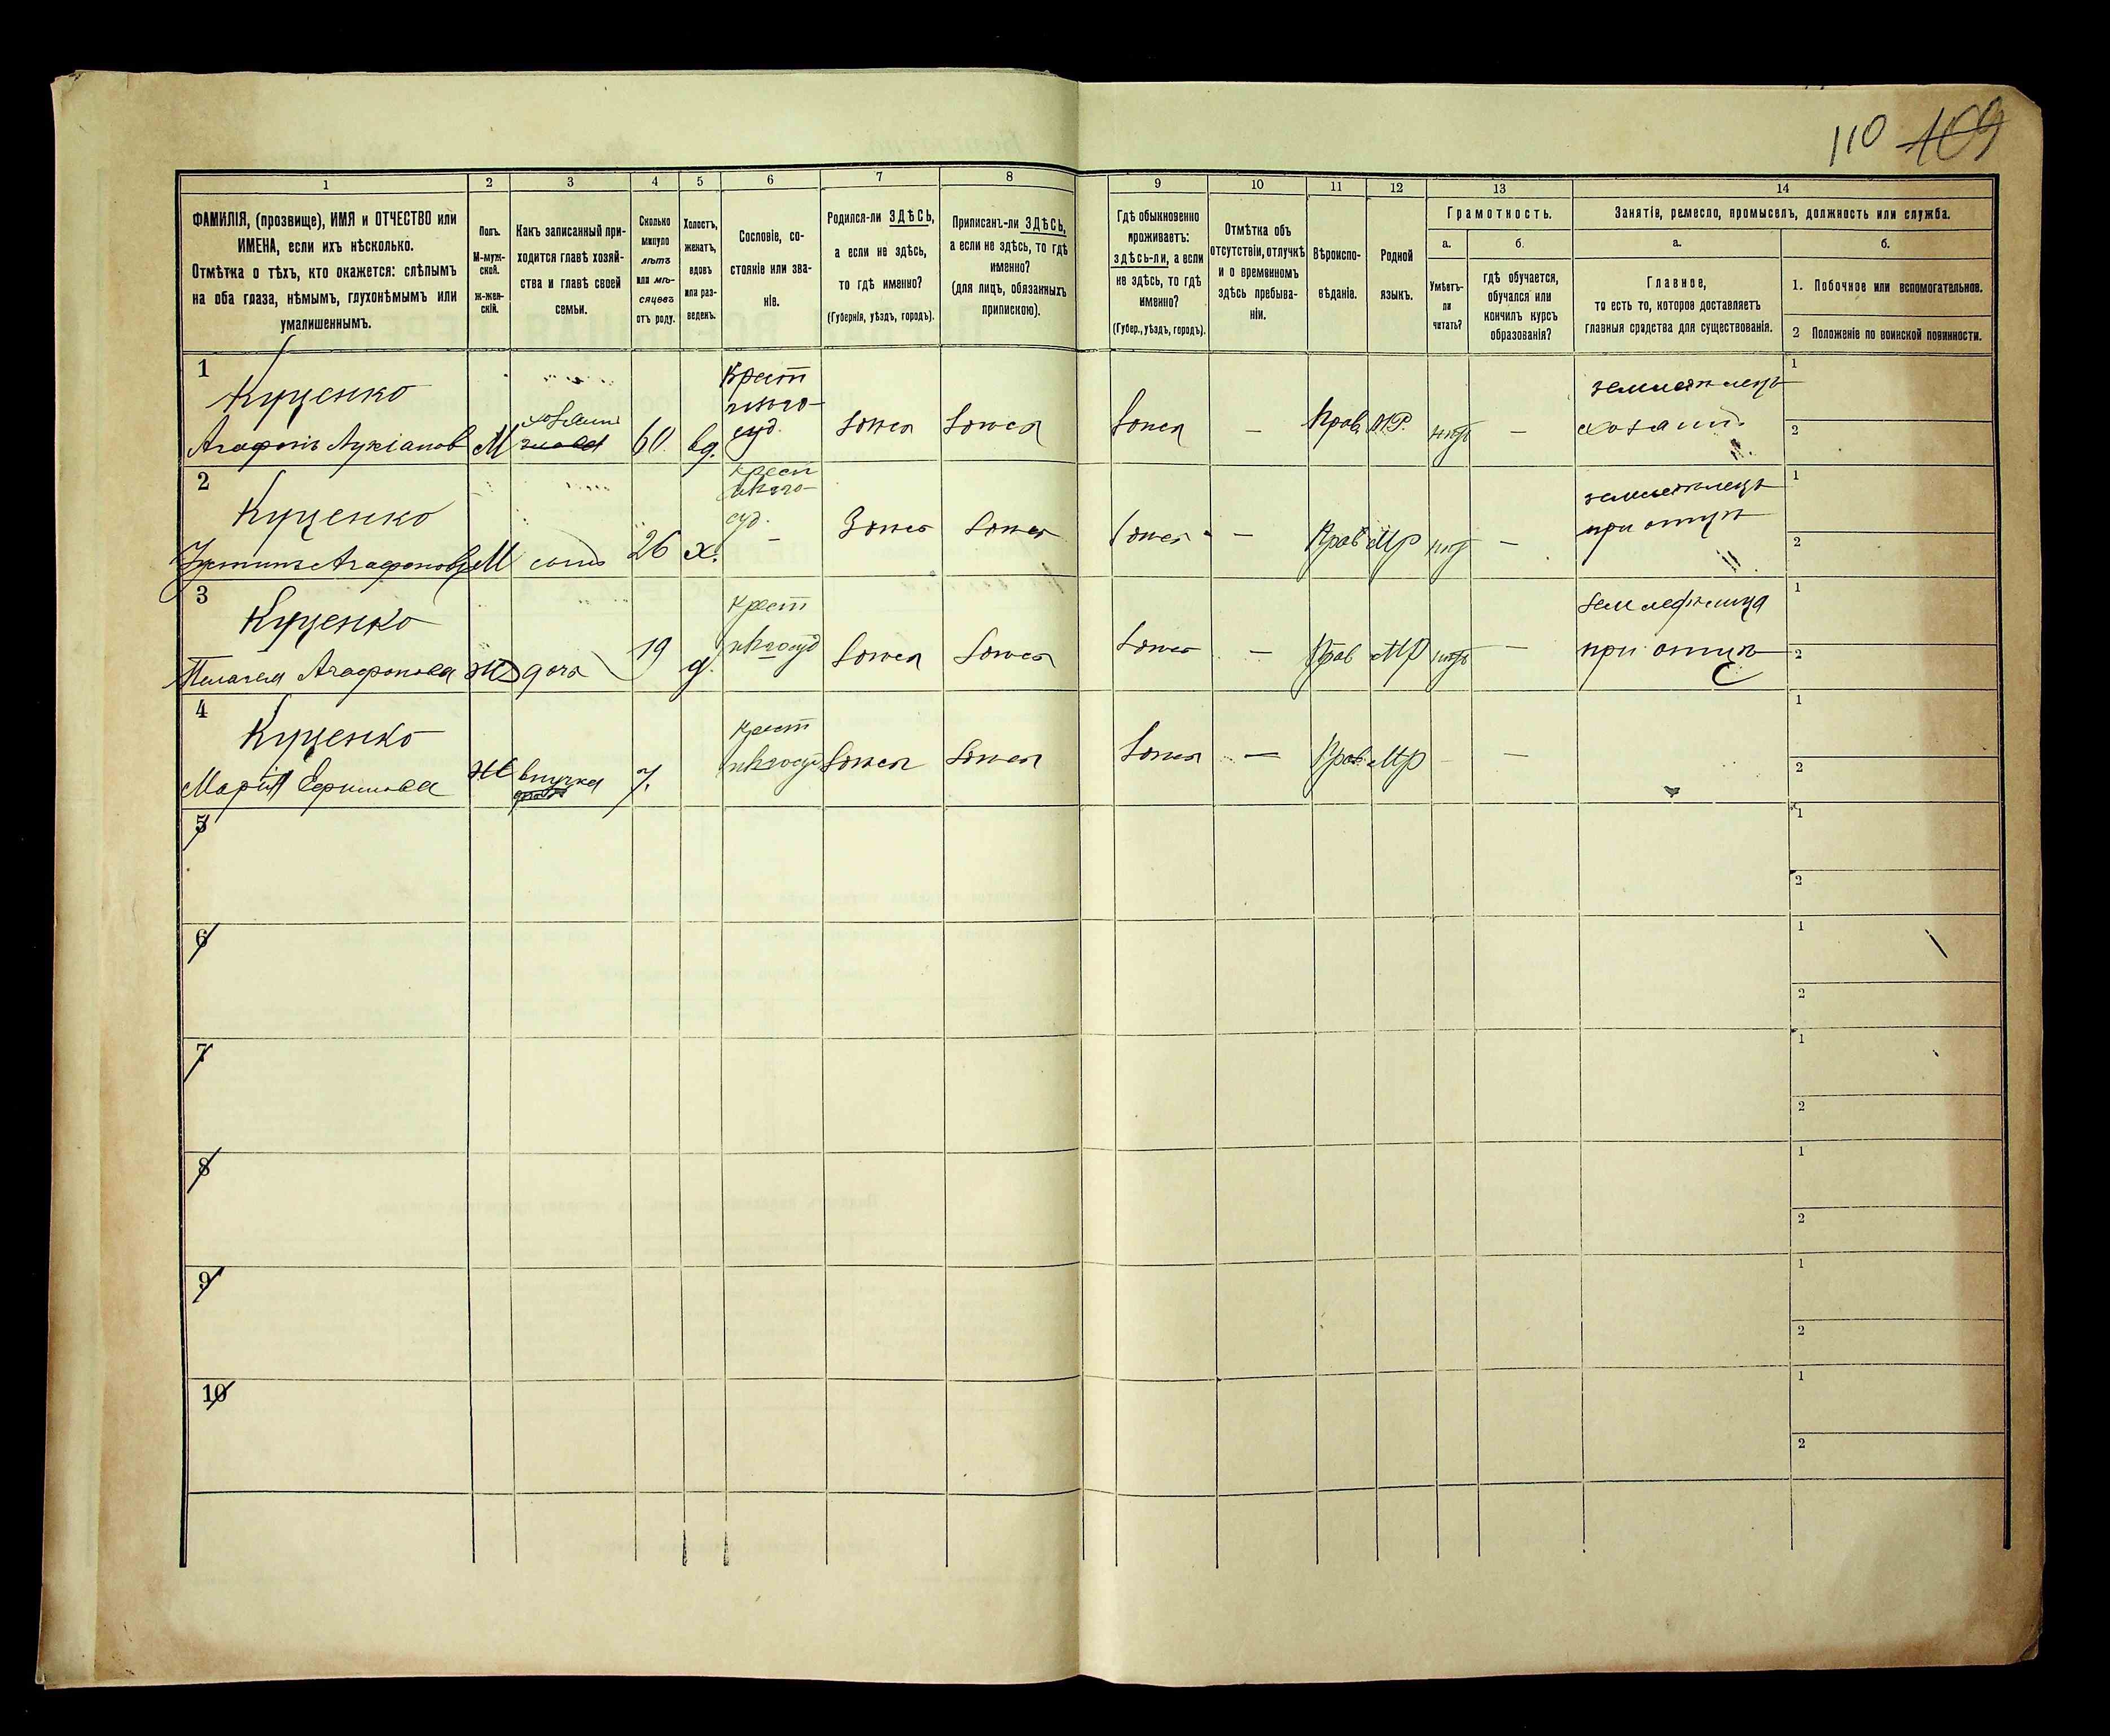 110 109
1 2 3 4 5 6 7 8 9 10 11 12 13 14
ФАМИЛІЯ, (прозвище), ИМЯ и ОТЧЕСТВО или
ИМЕНА, если ихъ нѣсколько.
Отмѣтка о тѣхъ, кто окажется: слѣпымъ
на оба глаза, нѣмымъ, глухонѣмымъ или
умалишеннымъ.
Полъ.
М-муж-
ской.
ж-жен-
скій.
Какъ записанный при-
ходится главѣ хозяй-
ства и главѣ своей
семьи.
Сколько
минуло
лѣтъ
или мѣ-
сяцевъ
отъ роду.
Холостъ,
женатъ,
вдовъ
или раз-
веденъ.
Сословіе, со-
стояніе или зва-
ніе.
Родился-ли ЗДѢСЬ,
а если не здѣсь,
то гдѣ именно?
(Губернія, уѣздъ, городъ).
Приписанъ-ли ЗДѢСЬ,
а если не здѣсь, то гдѣ
именно?
(для лицъ, обязанныхъ
припискою).
Гдѣ обыкновенно
проживаетъ:
здѣсь-ли, а если
не здѣсь, то гдѣ
именно?
(Губер., уѣздъ, городъ).
Отмѣтка объ
отсутствіи, отлучкѣ
и о временномъ
здѣсь пребыва-
ніи.
Вѣроиспо-
вѣданіе.
Родной
языкъ.
Грамотность.
а.
Умѣетъ-
ли
читать?
б.
гдѣ обучается,
обучался или
кончилъ курсъ
образованія?
Занятіе, ремесло, промыселъ, должность или служба.
а.
Главное,
то есть то, которое доставляетъ
главныя средства для существованія.
б.
1. Побочное или вспомогательное.
2 Положеніе по воинской повинности.
1
Куценко
Агафонъ Лукіановъ М хозяинъ 60 вд.
Крест
здѣся здѣся здѣся — Прав. М.Р. нѣтъ —
земледѣлецъ
хозяинъ
1
2
2
Куценко
Устинъ Агафоновъ М сынъ 26 х.
крест
здѣсь здѣсь здѣсь — Прав МР нѣтъ —
земледѣлецъ
при отцѣ
1
2
3
Куценко
Пелагея Агафонова Ж дочь 19 д.
крест
здѣся здѣся здѣсь — Прав МР нѣтъ —
земледѣлица
при отцѣ
1
2
4
Куценко
Марія Ефимова Ж внучка 7.
крест
здѣся здѣся здѣся — Прав. МР —
1
2
5
1
2
6
1
2
7
1
2
8
1
2
9
1
2
10
1
2